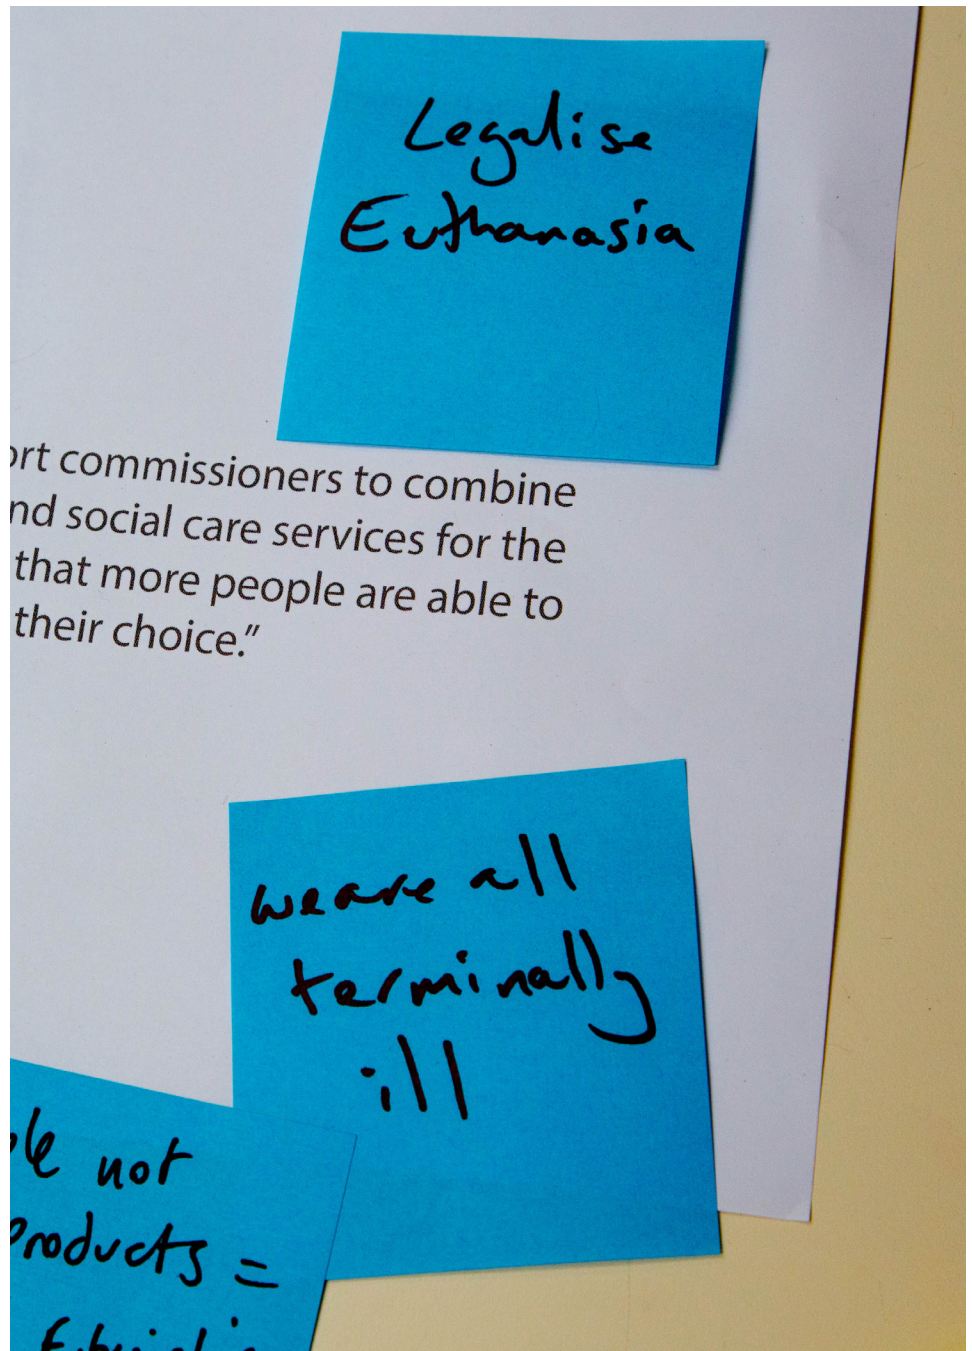 Legalise
Euthanasia
ort commissioners to combine
nd social care services for the
that more people are able to
their choice.”
we are all
terminally
ill
not
products =